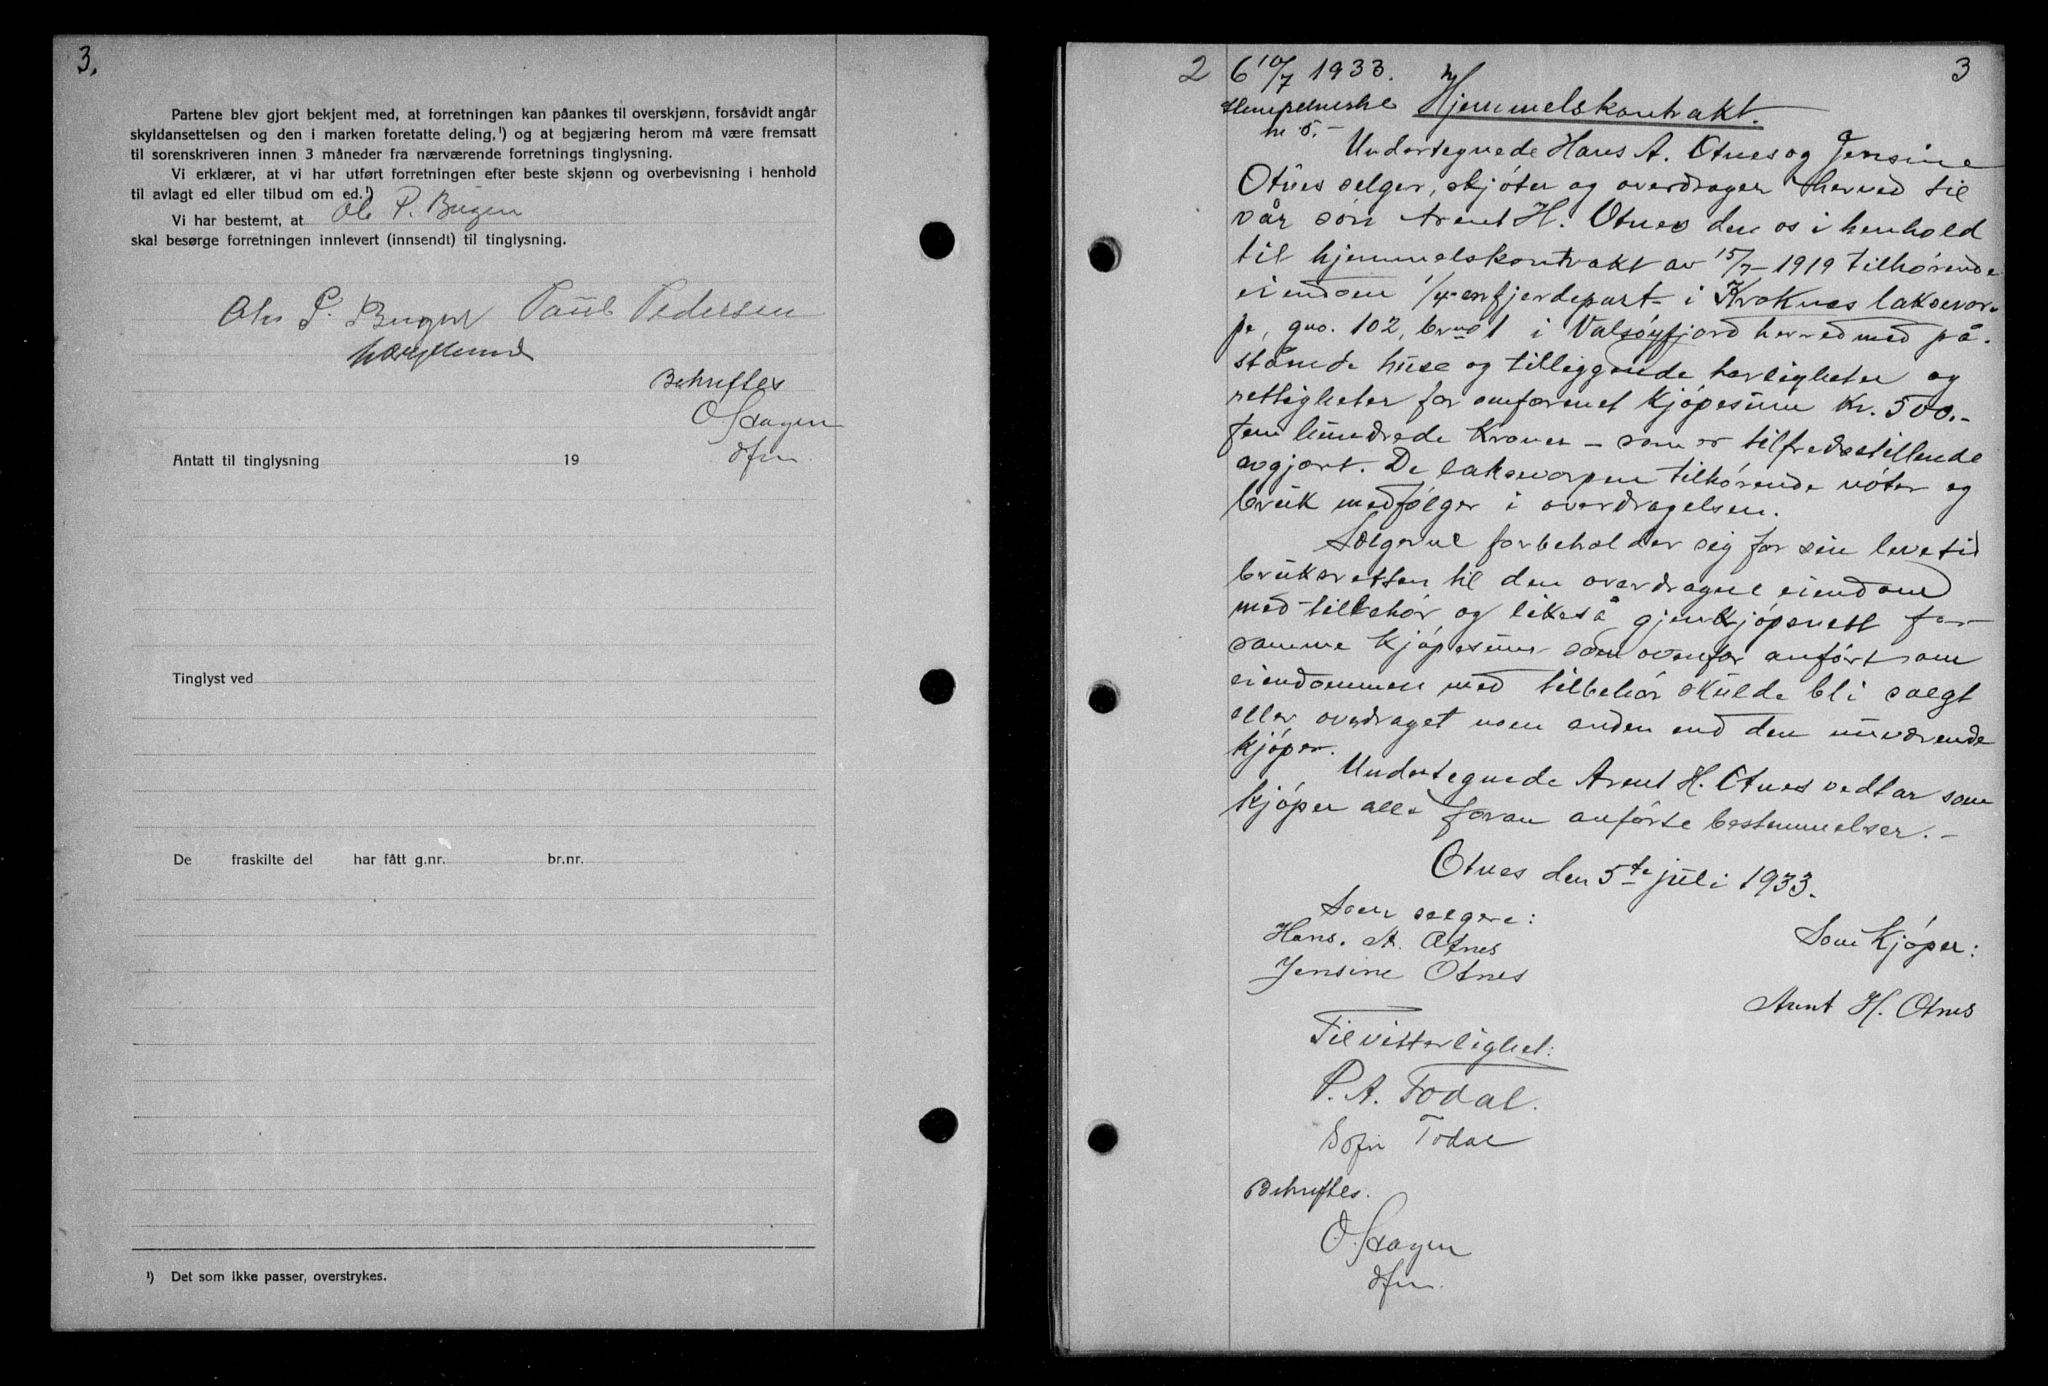 3.
Partene blev gjort bekjent med, at forretningen kan påankes til overskjønn, forsåvidt angår
skyldansettelsen og den i marken foretatte deling,¹) og at begjæring herom må være fremsatt
til sorenskriveren innen 3 måneder fra nærværende forretnings tinglysning.
Vi erklærer, at vi har utført forretningen efter beste skjønn og overbevisning i henhold
til avlagt ed eller tilbud om ed.¹)
Vi har bestemt, at Ole P. Bugen
skal besørge forretningen innlevert (innsendt) til tinglysning.
Ole P. Bugen Paul Pedersen
Bekreftes
O Skagen
Antatt til tinglysning 19
Tinglyst ved
De fraskilte del har fått g.nr. br.nr.
¹) Det som ikke passer, overstrykes.
2 6 10/7 1933. 3
Hjemmelskontrakt.
Undertegnede Hans A. Otnes og Jensine
Otnes selger, skjøter og overdrager herved til
vår søn Arent H. Otnes den os i henhold
til hjemmelskontrakt av 15/7-1919 tilhørende
eiendom 1/4 en fjerdepart i Kroknes laksevor-
pe, gno. 102, bruno 1 i Valsøyfjord herred med på-
stående huse og tilliggende herligheter og
rettigheter for omforenet kjøpesum kr. 500.-
fem hundrede kroner - som er tilfredsstillende
avgjort. De laksevorpen tilhørende nøter og
bruk medfølger i overdragelsen.
Sælgerne forbeholder sig for sin levetid
bruksretten til den overdragne eiendom
med tilbehør, og likeså gjenkjøpsrett for
samme kjøpesum som ovenfor anført om
eiendommen med tilbehør skulde bli solgt
eller overdraget noen anden end den nuværende
kjøper.
Undertegnede Arent H. Otnes vedtar som
kjøper alle foran anførte bestemmelser. -
Otnes den 5te juli 1933.
Som selgere:
Hans. A. Otnes
Jensine Otnes
Som kjøper:
Arent H. Otnes
Til vitterlighet:
P. A. Todal.
Sofie Todal
Bekreftes.
O. Skagen